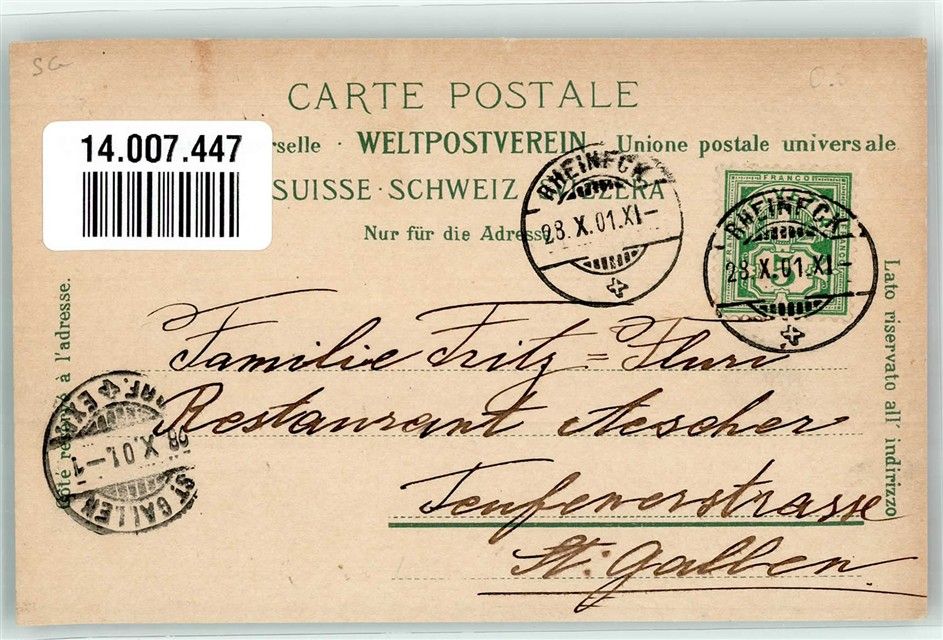 SG
CARTE POSTALE
14.007.447
rselle · WELTPOSTVEREIN · Unione postale universale
SUISSE · SCHWEIZ · ZZERA
Nur für die Adresse
FRANCO
5
RHEINECK
28.X.01.XI–
RHEINECK
28.X.01.XI–
Côté réservé à l'adresse.
Lato riservato all' indirizzo
Familie Fritz = Flury
Restaurant Aescher
Teufenerstrasse
St. Gallen
ST. GALLEN
28.X.01.–1
BRF. EXP.